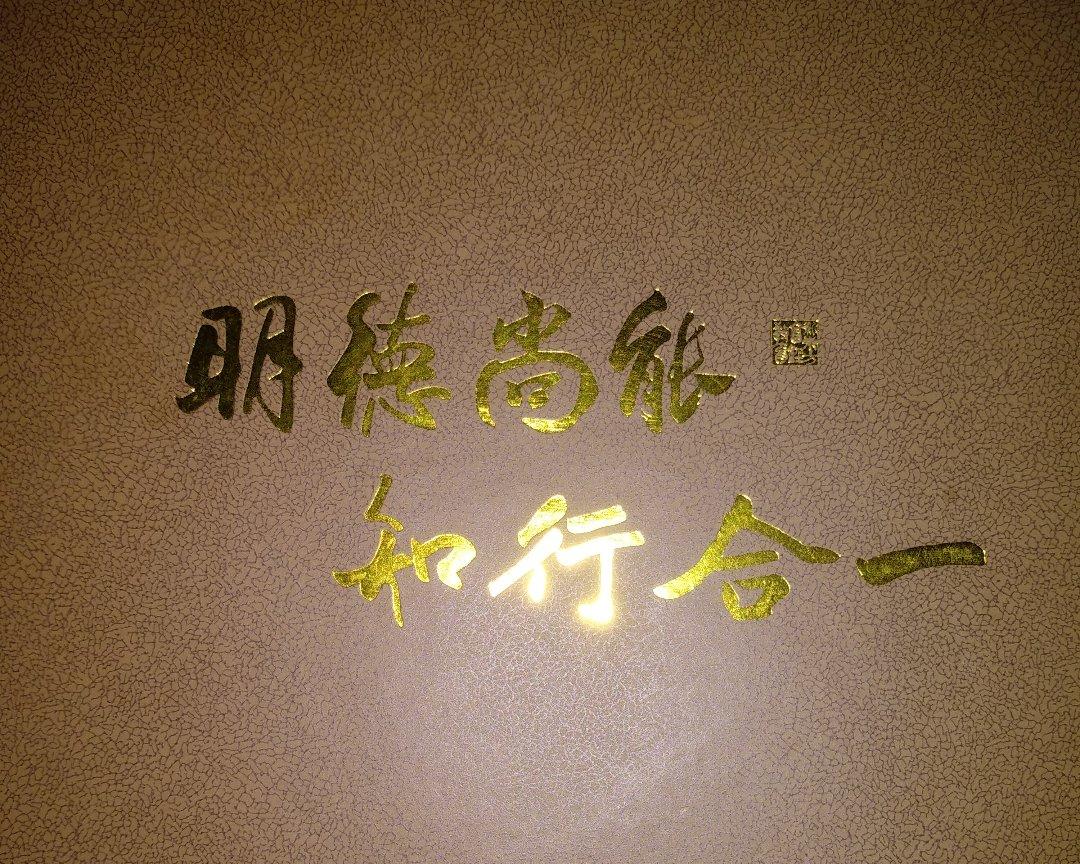 明德尚能
和行合一